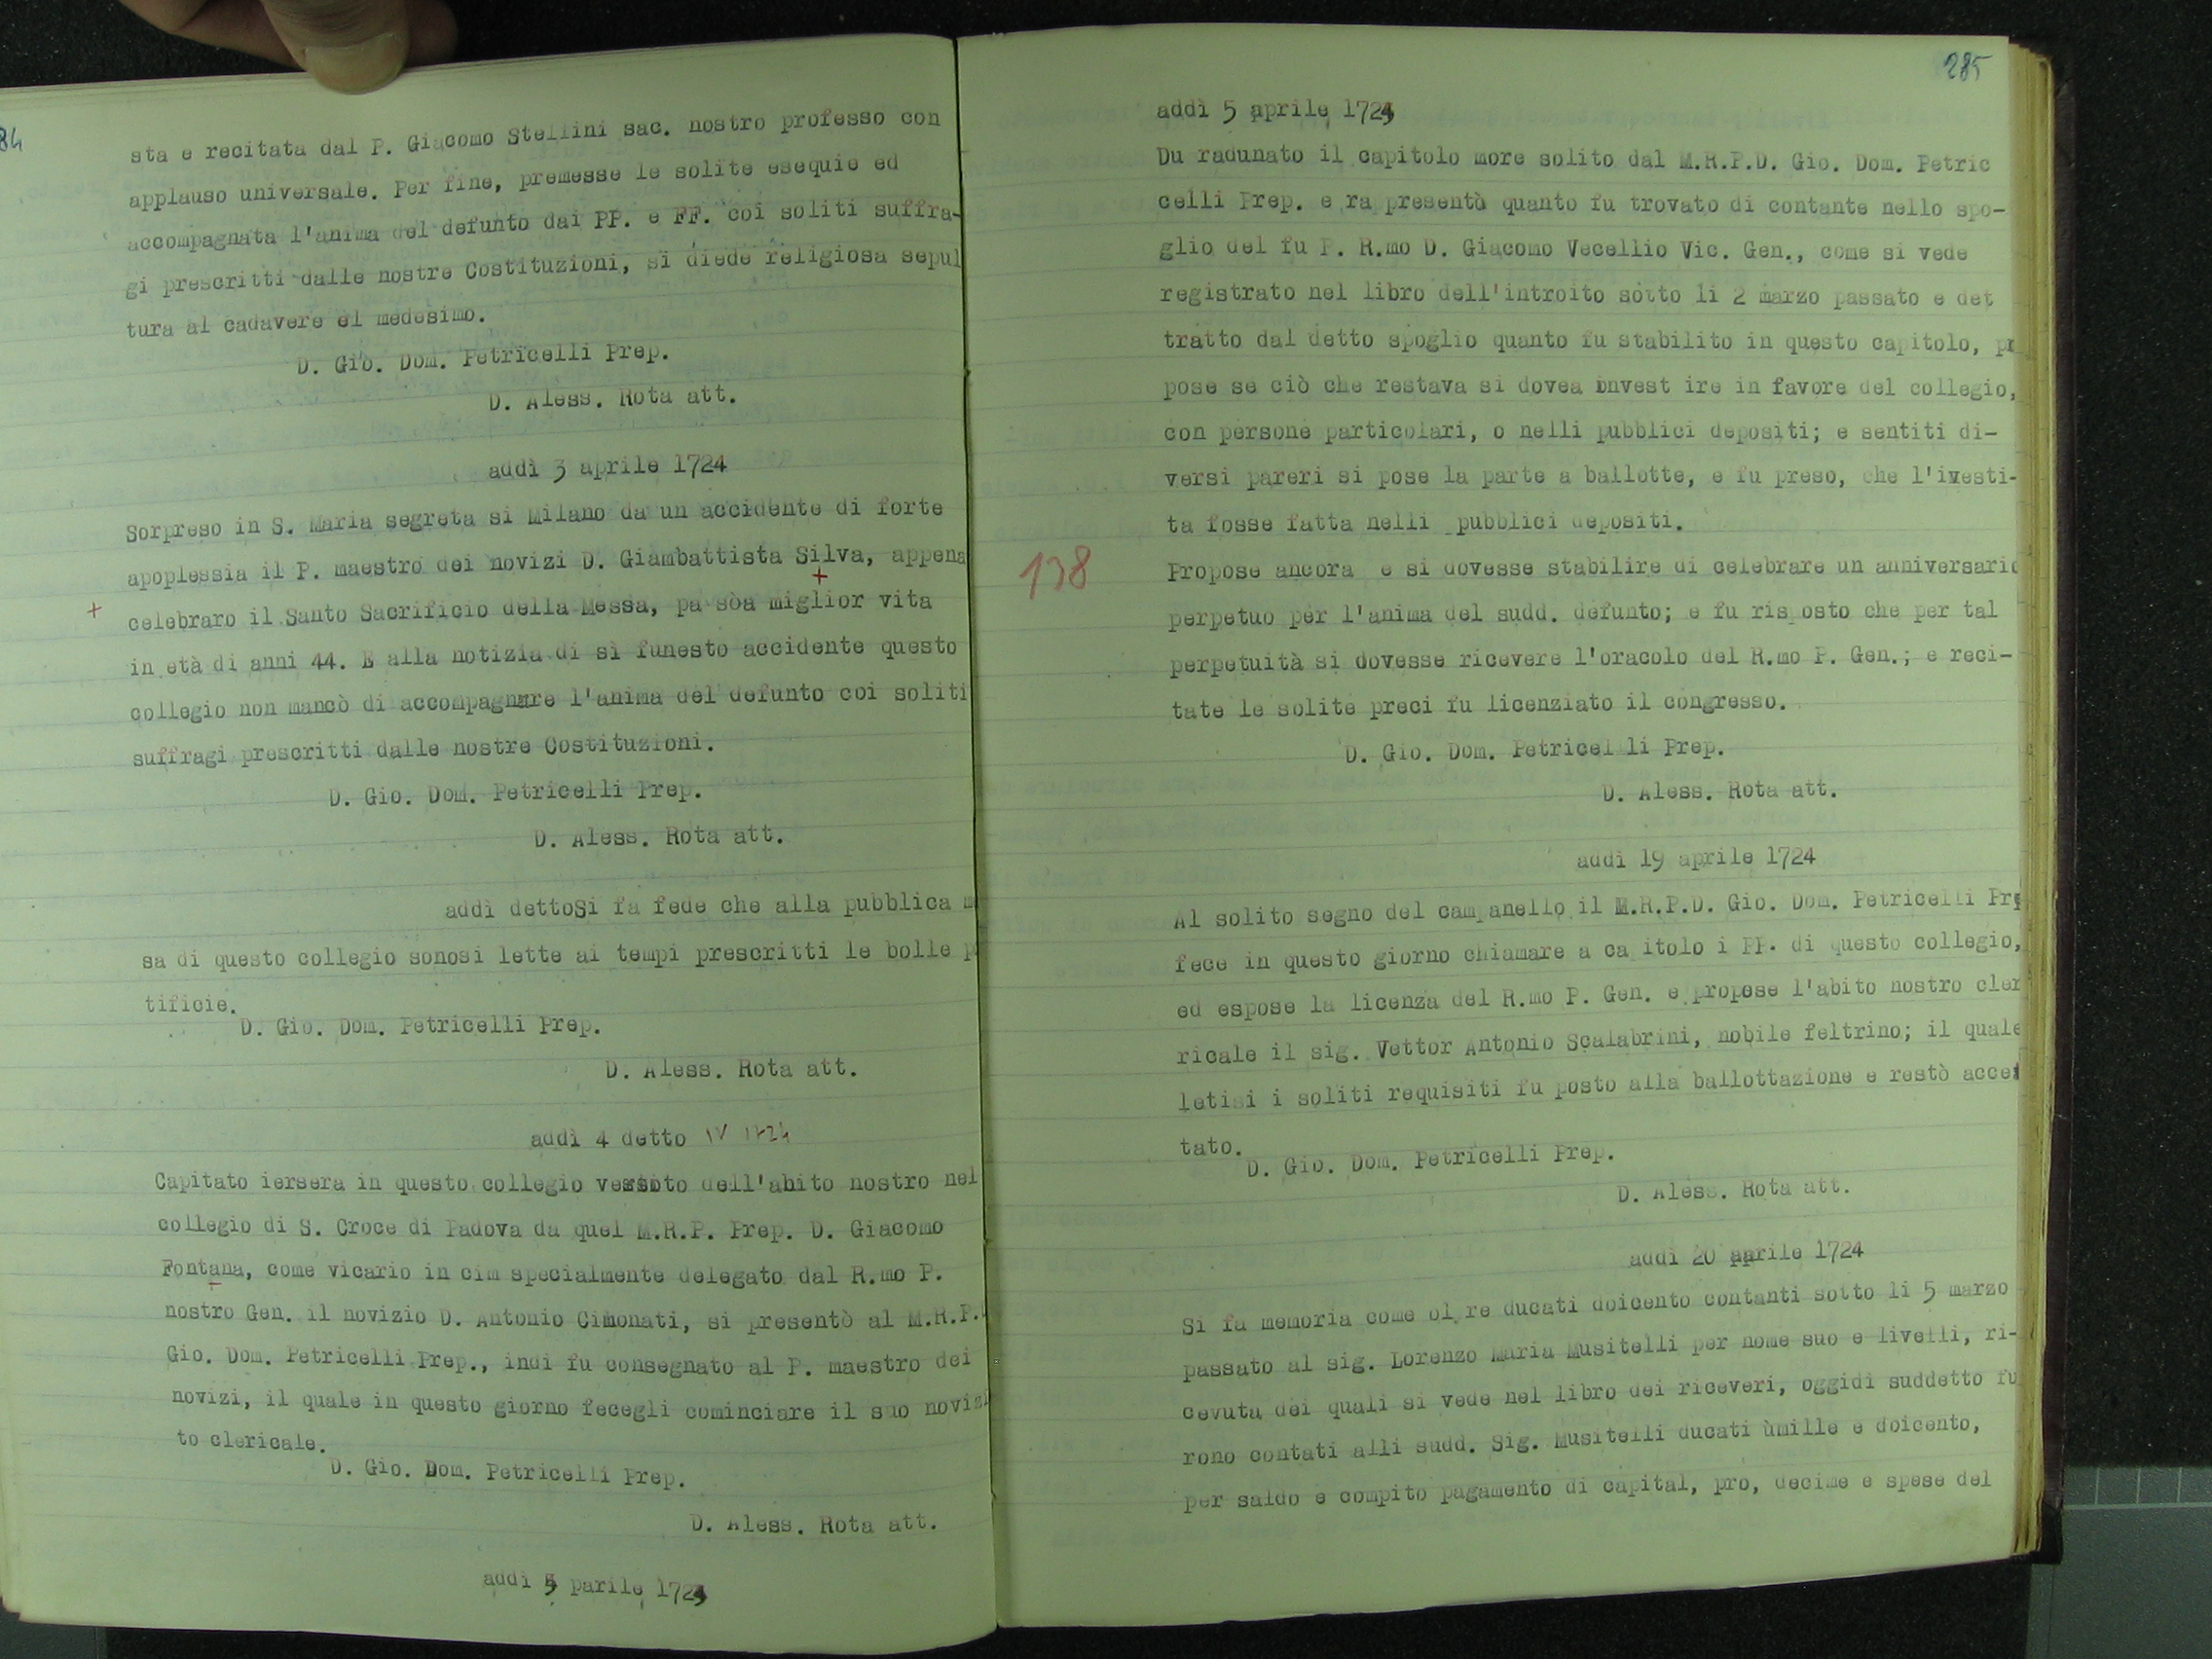 84
sta e recitata dal P. Giacomo Stellini sac. nostro professo con
applauso universale. Per fine, premesse le solite esequie ed
accompagnata l'anima del defunto dai PP. e FF. coi soliti suffra-
gi prescritti dalle nostre Costituzioni, si diede religiosa sepul
tura al cadavere el medesimo.
D. Gio. Dom. Petricelli Prep.
D. Aless. Rota att.
addì 3 aprile 1724
Sorpreso in S. Maria segreta si Milano da un accidente di forte
apoplessia il P. maestro dei novizi D. Giambattista Silva, appena
celebraro il Santo Sacrificio della Messa, pa sòa miglior vita
in età di anni 44. E alla notizia di sì funesto accidente questo
collegio non mancò di accompagnare l'anima del defunto coi soliti
suffragi prescritti dalle nostre Costituzioni.
D. Gio. Dom. Petricelli Prep.
D. Aless. Rota att.
addì dettoSi fa fede che alla pubblica m
sa di questo collegio sonosi lette ai tempi prescritti le bolle p
tificie.
D. Gio. Dom. Petricelli Prep.
D. Aless. Rota att.
addì 4 detto IV 1724
Capitato iersera in questo collegio vestito dell'abito nostro nel
collegio di S. Croce di Padova da quel M.R.P. Prep. D. Giacomo
Fontana, come vicario in cim specialmente delegato dal R.mo P.
nostro Gen. il novizio D. Antonio Cimonati, si presentò al M.R.P.
Gio. Dom. Petricelli Prep., indi fu consegnato al P. maestro dei
novizi, il quale in questo giorno fecegli cominciare il suo novizi
to clericale.
D. Gio. Dom. Petricelli Prep.
D. Aless. Rota att.
addì 5 parile 1724
285
addì 5 aprile 1724
Du radunato il capitolo more solito dal M.R.P.D. Gio. Dom. Petric
celli Prep. e ra presentò quanto fu trovato di contante nello spo-
glio del fu P. R.mo D. Giacomo Vecellio Vic. Gen., come si vede
registrato nel libro dell'introito sotto li 2 marzo passato e det
tratto dal detto spoglio quanto fu stabilito in questo capitolo, pr
pose se ciò che restava si dovea invest ire in favore del collegio,
con persone particolari, o nelli pubblici depositi; e sentiti di-
versi pareri si pose la parte a ballotte, e fu preso, che l'ivesti-
ta fosse fatta nelli pubblici depositi.
138
Propose ancora e si dovesse stabilire di celebrare un anniversario
perpetuo per l'anima del sudd. defunto; e fu ris osto che per tal
perpetuità si dovesse ricevere l'oracolo del R.mo P. Gen.; e reci-
tate le solite preci fu licenziato il congresso.
D. Gio. Dom. Petricelli Prep.
D. Aless. Rota att.
addì 19 aprile 1724
Al solito segno del campanello il M.R.P.D. Gio. Dom. Petricelli Pre
fece in questo giorno chiamare a ca itolo i PP. di questo collegio,
ed espose la licenza del R.mo P. Gen. e propose l'abito nostro cler
ricale il sig. Vettor Antonio Scalabrini, nobile feltrino; il quale
letisi i soliti requisiti fu posto alla ballottazione e restò accet
tato.
D. Gio. Dom. Petricelli Prep.
D. Aless. Rota att.
addì 20 aprile 1724
Si fa memoria come ol re ducati doicento contanti sotto li 5 marzo
passato al sig. Lorenzo Maria Musitelli per nome suo e livelli, ri-
cevuta dei quali si vede nel libro dei riceveri, oggidì suddetto fu
rono contati alli sudd. Sig. Musitelli ducati ùmille e doicento,
per saldo e compito pagamento di capital, pro, decime e spese del